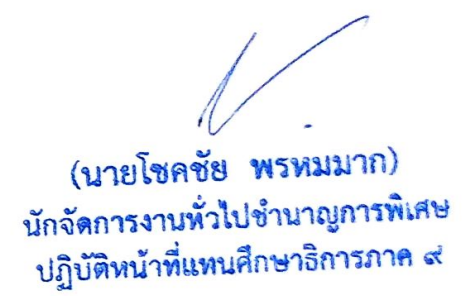 (นายโชคชัย  พรหมมาก)
นักจัดการงานทั่วไปชำนาญการพิเศษ
ปฏิบัติหน้าที่แทนศึกษาธิการภาค ๙